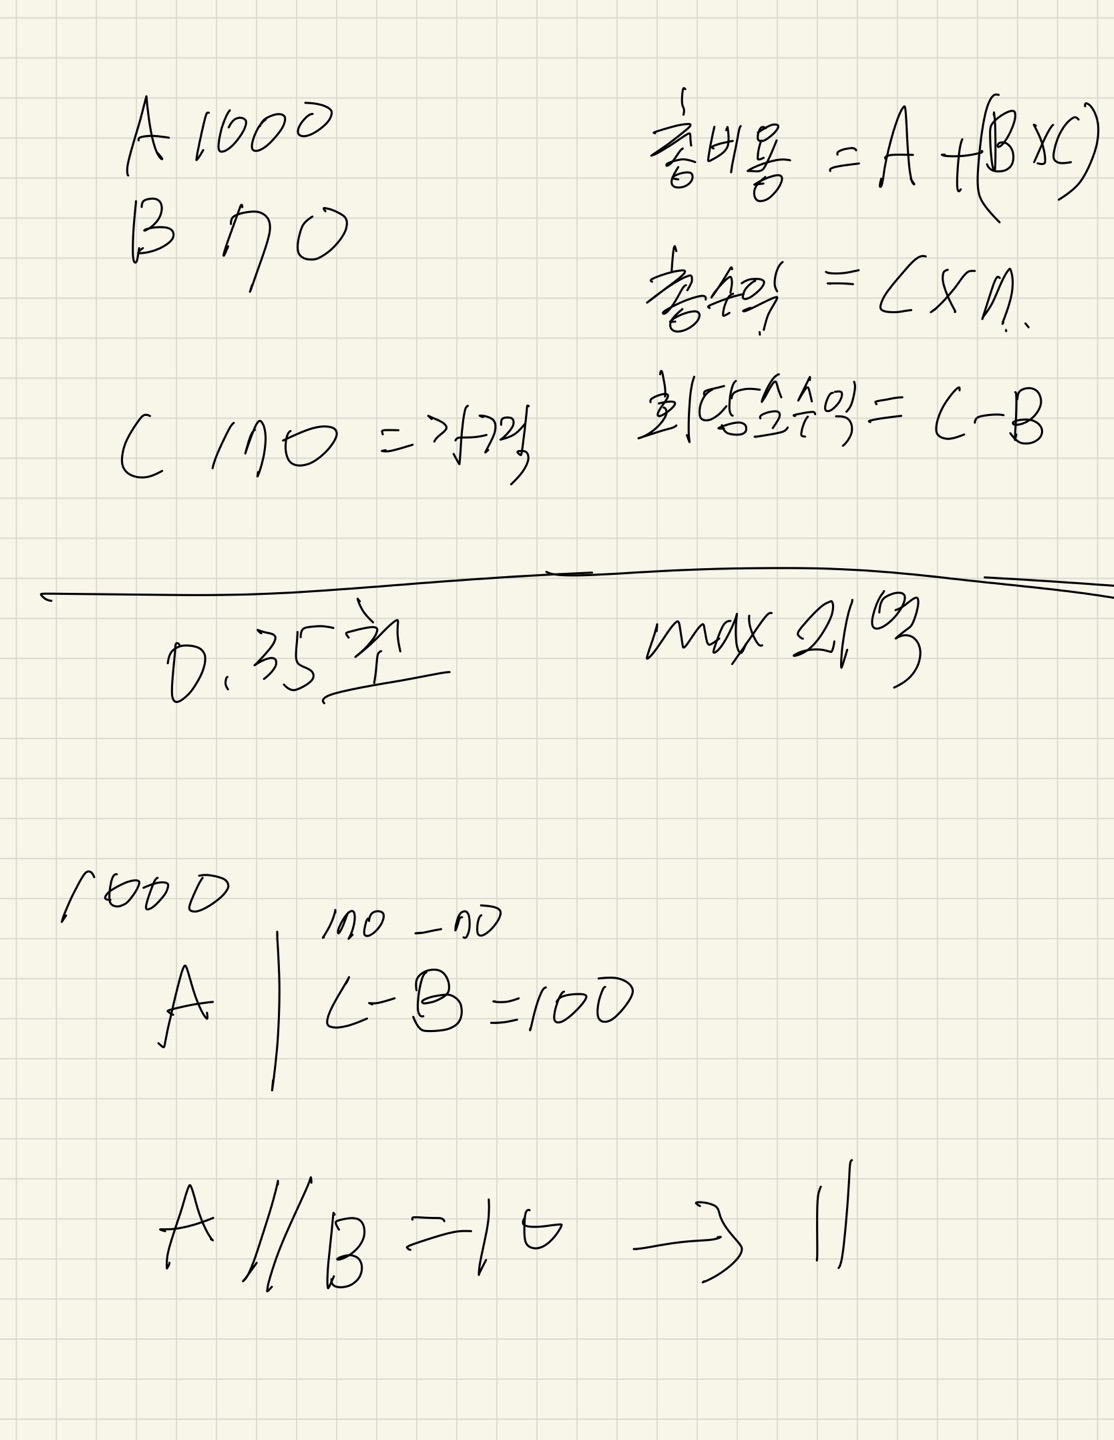 A 1000
B 70
C 170 = 가격
총비용 = A + (B x C)
총수익 = C x n.
회당실수익 = C - B
0.35초
max 21억
1000
A
170 - 70
C - B = 100
A // B = 10 → 11